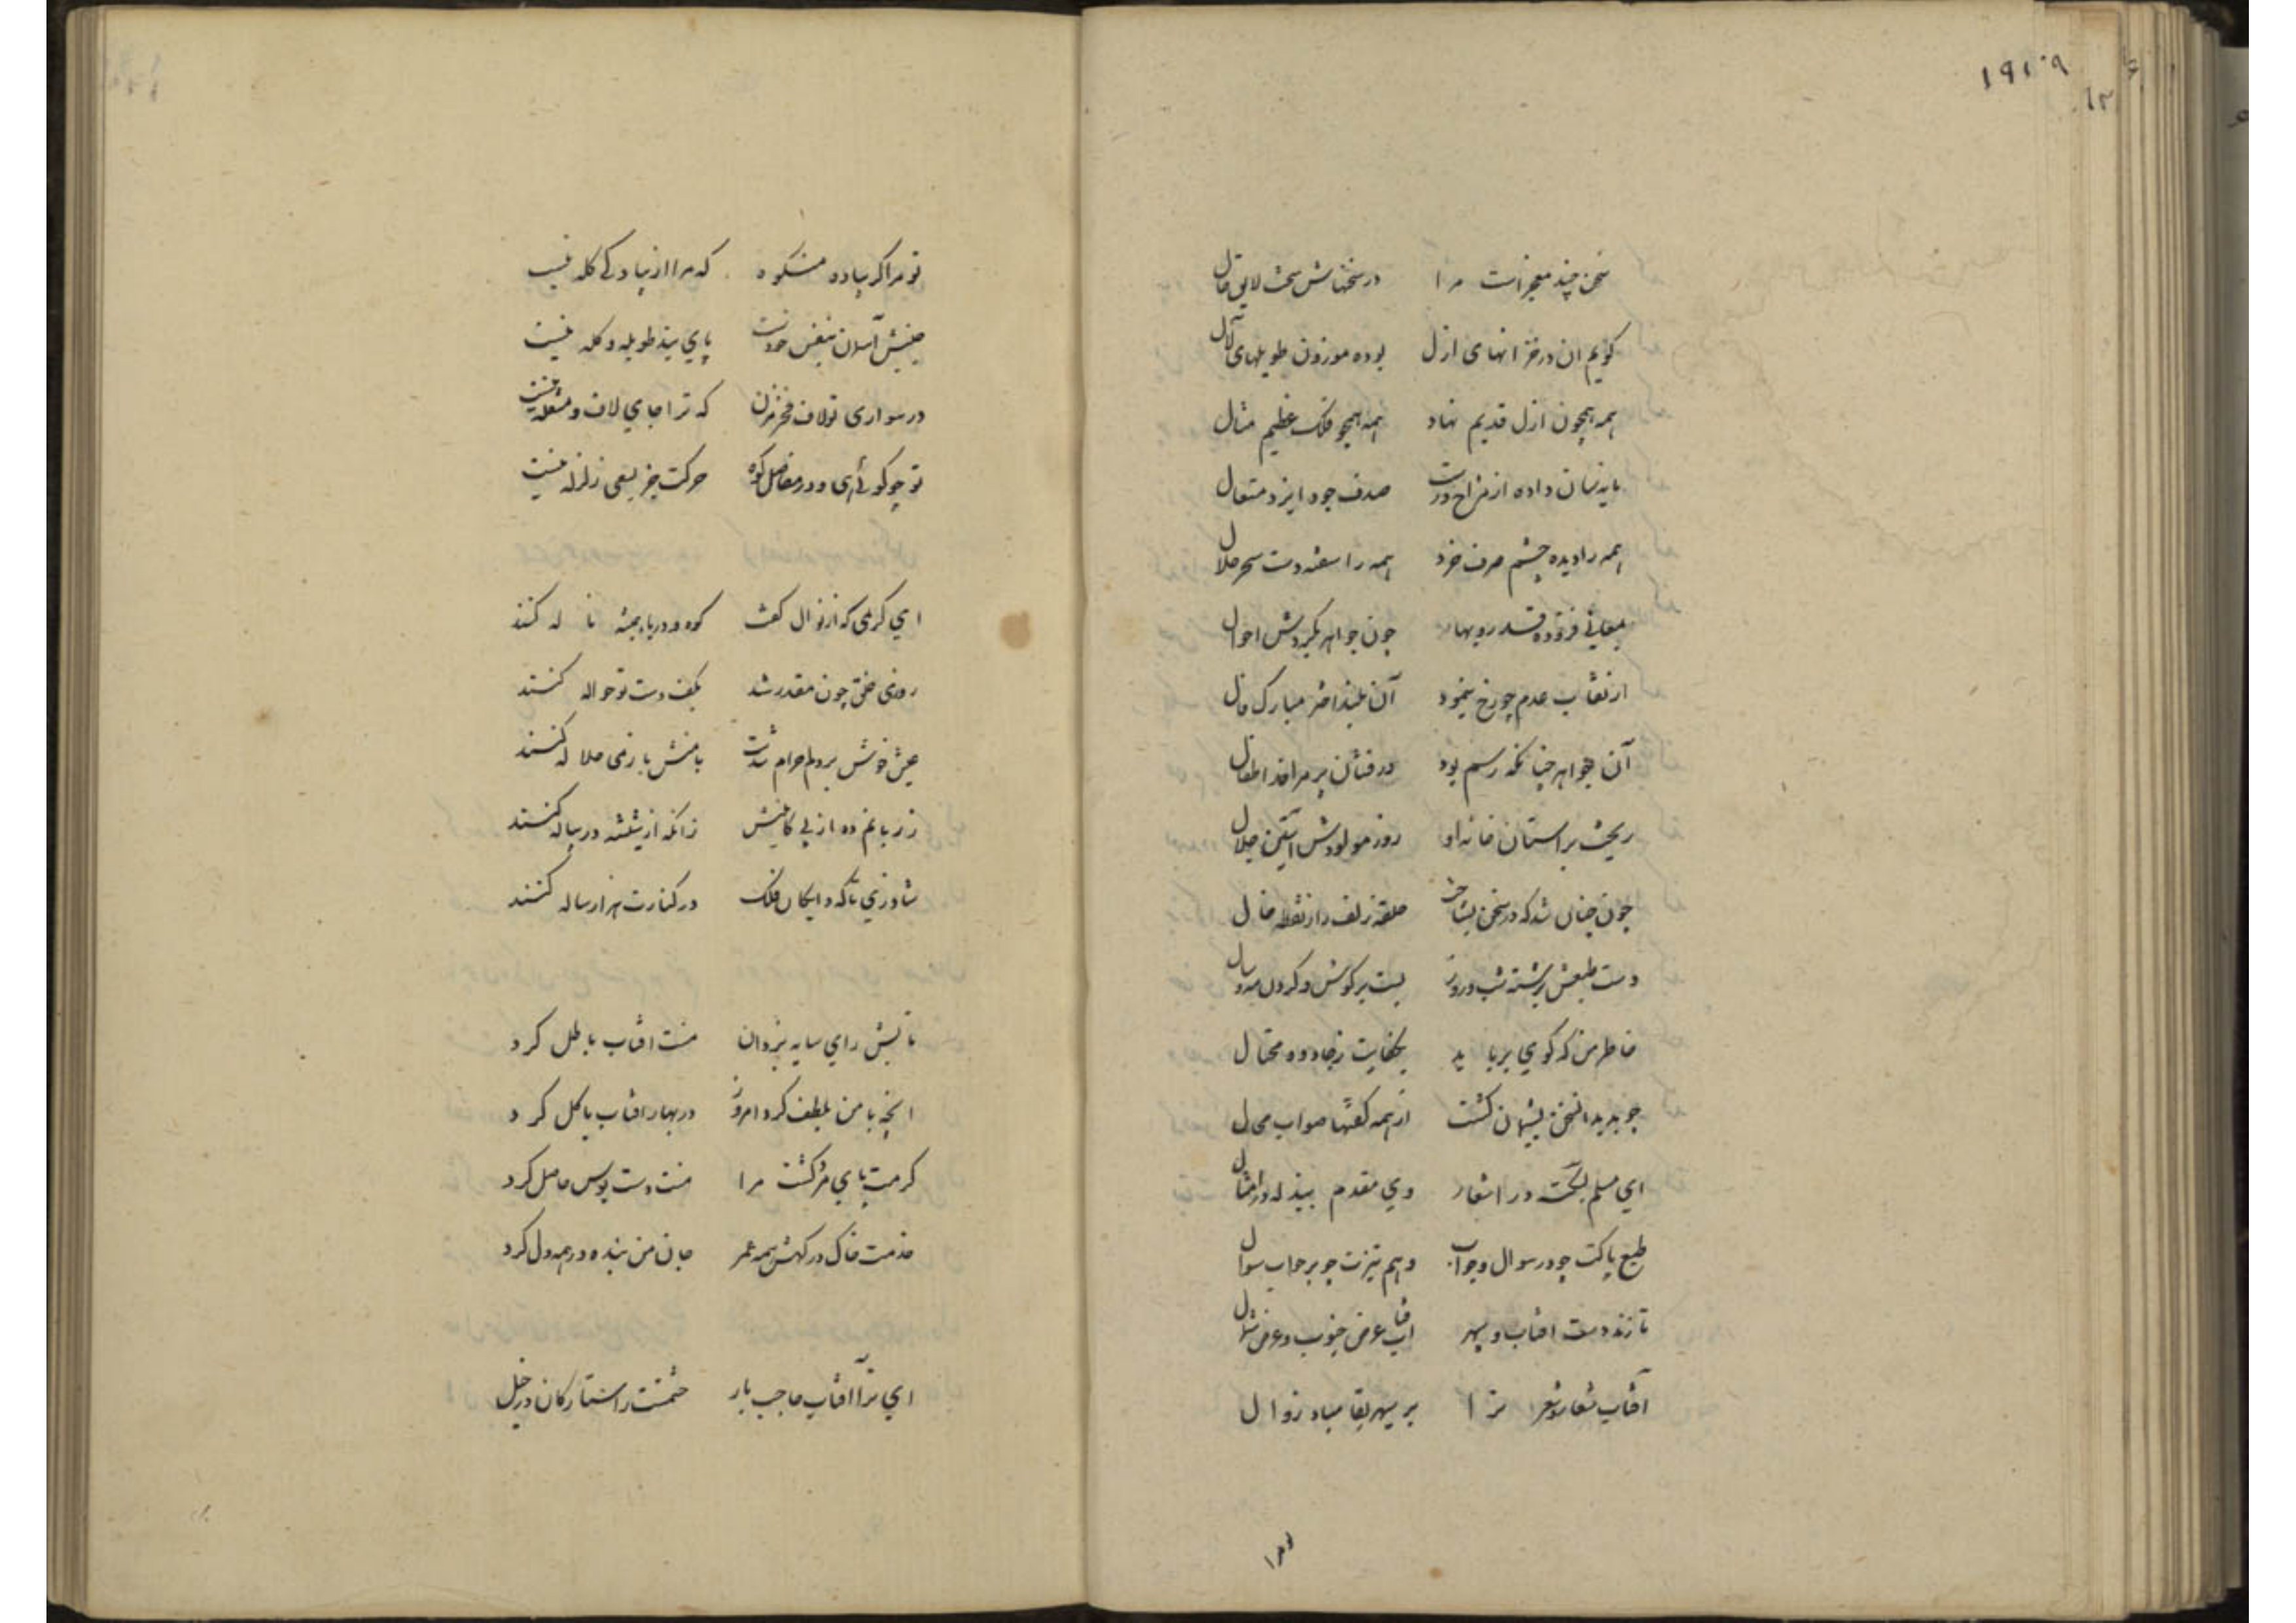 ۱۹۱۰۹
۱۲
سخن چند معجزست مرا در سخنهاش سخت لایق حال
کویم ان در خزانهای ازل بوده موزون طویلهای لآل
همه همچون ازل قدیم نهاد همه همچو فلک عظیم مثال
مایه شان داده از مزاج درست صدف جود ایزد متعال
همه را دیده چشم صرف خرد همه را سفته دست سحر حلال
بمعانی فزوده قدر و بها چون جواهر بگردش احوال
از نقاب عدم چو رخ بنمود آن بلند اختر مبارک فال
آن جواهر چنانکه رسم بود در فشان بر سر اطفال
ریخت بر آستان خانه او روز مولودش آستین جلال
چون چنان شد که در سخن بشناخت حلقه زلف را ز نقطه خال
دست طبعش برشته شب و روز بست بر کوش و کردن مه و سال
خاطر من که کوی برباید بکفایت ز جادوه محتال
چو بدید آن سخن پشیمان کشت از همه کفتها صواب و محال
ای مسلم بنکته در اشعار وی مقدم ببذله در امثال
طبع پاکت چو در سوال و جواب وهم تیزت چو بر جواب سوال
تا زند دست افتاب و سپهر آب عرض جنوب و عرض شمال
آفتاب شعار و شعر ترا بر سپهر بقا مباد زوال
تو مرا کر پیاده مشکوه که مرا از پیادکی کله نیست
جنبش آسمان بنفس خودست پای بند طویله و کله نیست
در سواری تو لاف فخر مزن که ترا جای لاف و مشغله نیست
تو چو کوئی و در مفاصل کوه حرکت جز بسعی زلزله نیست
ای کریمی که از نوال کفت کوه و دریا همیشه ناله کنند
روزی خلق چون مقدر شد بکف دست تو حواله کنند
عیش خوش بر دلم حرام شدست بامنش باز می حلاله کنند
زر بده از پی کابینش زانکه از شیشه در پیاله کنند
شاد زی تا که دایکان فلک در کنارت هزار ساله کنند
تابش رای سایه یزدان منت افتاب باطل کرد
انچه با من بلطف کرد امروز در بهار افتاب با کل کرد
کر مپای کشت مرا منت دست بوس حاصل کرد
خدمت خاک درکهش همه عمر جان من بنده در همه دل کرد
ای ترا آفتاب حاجب بار حشمتت را ستارکان در خیل